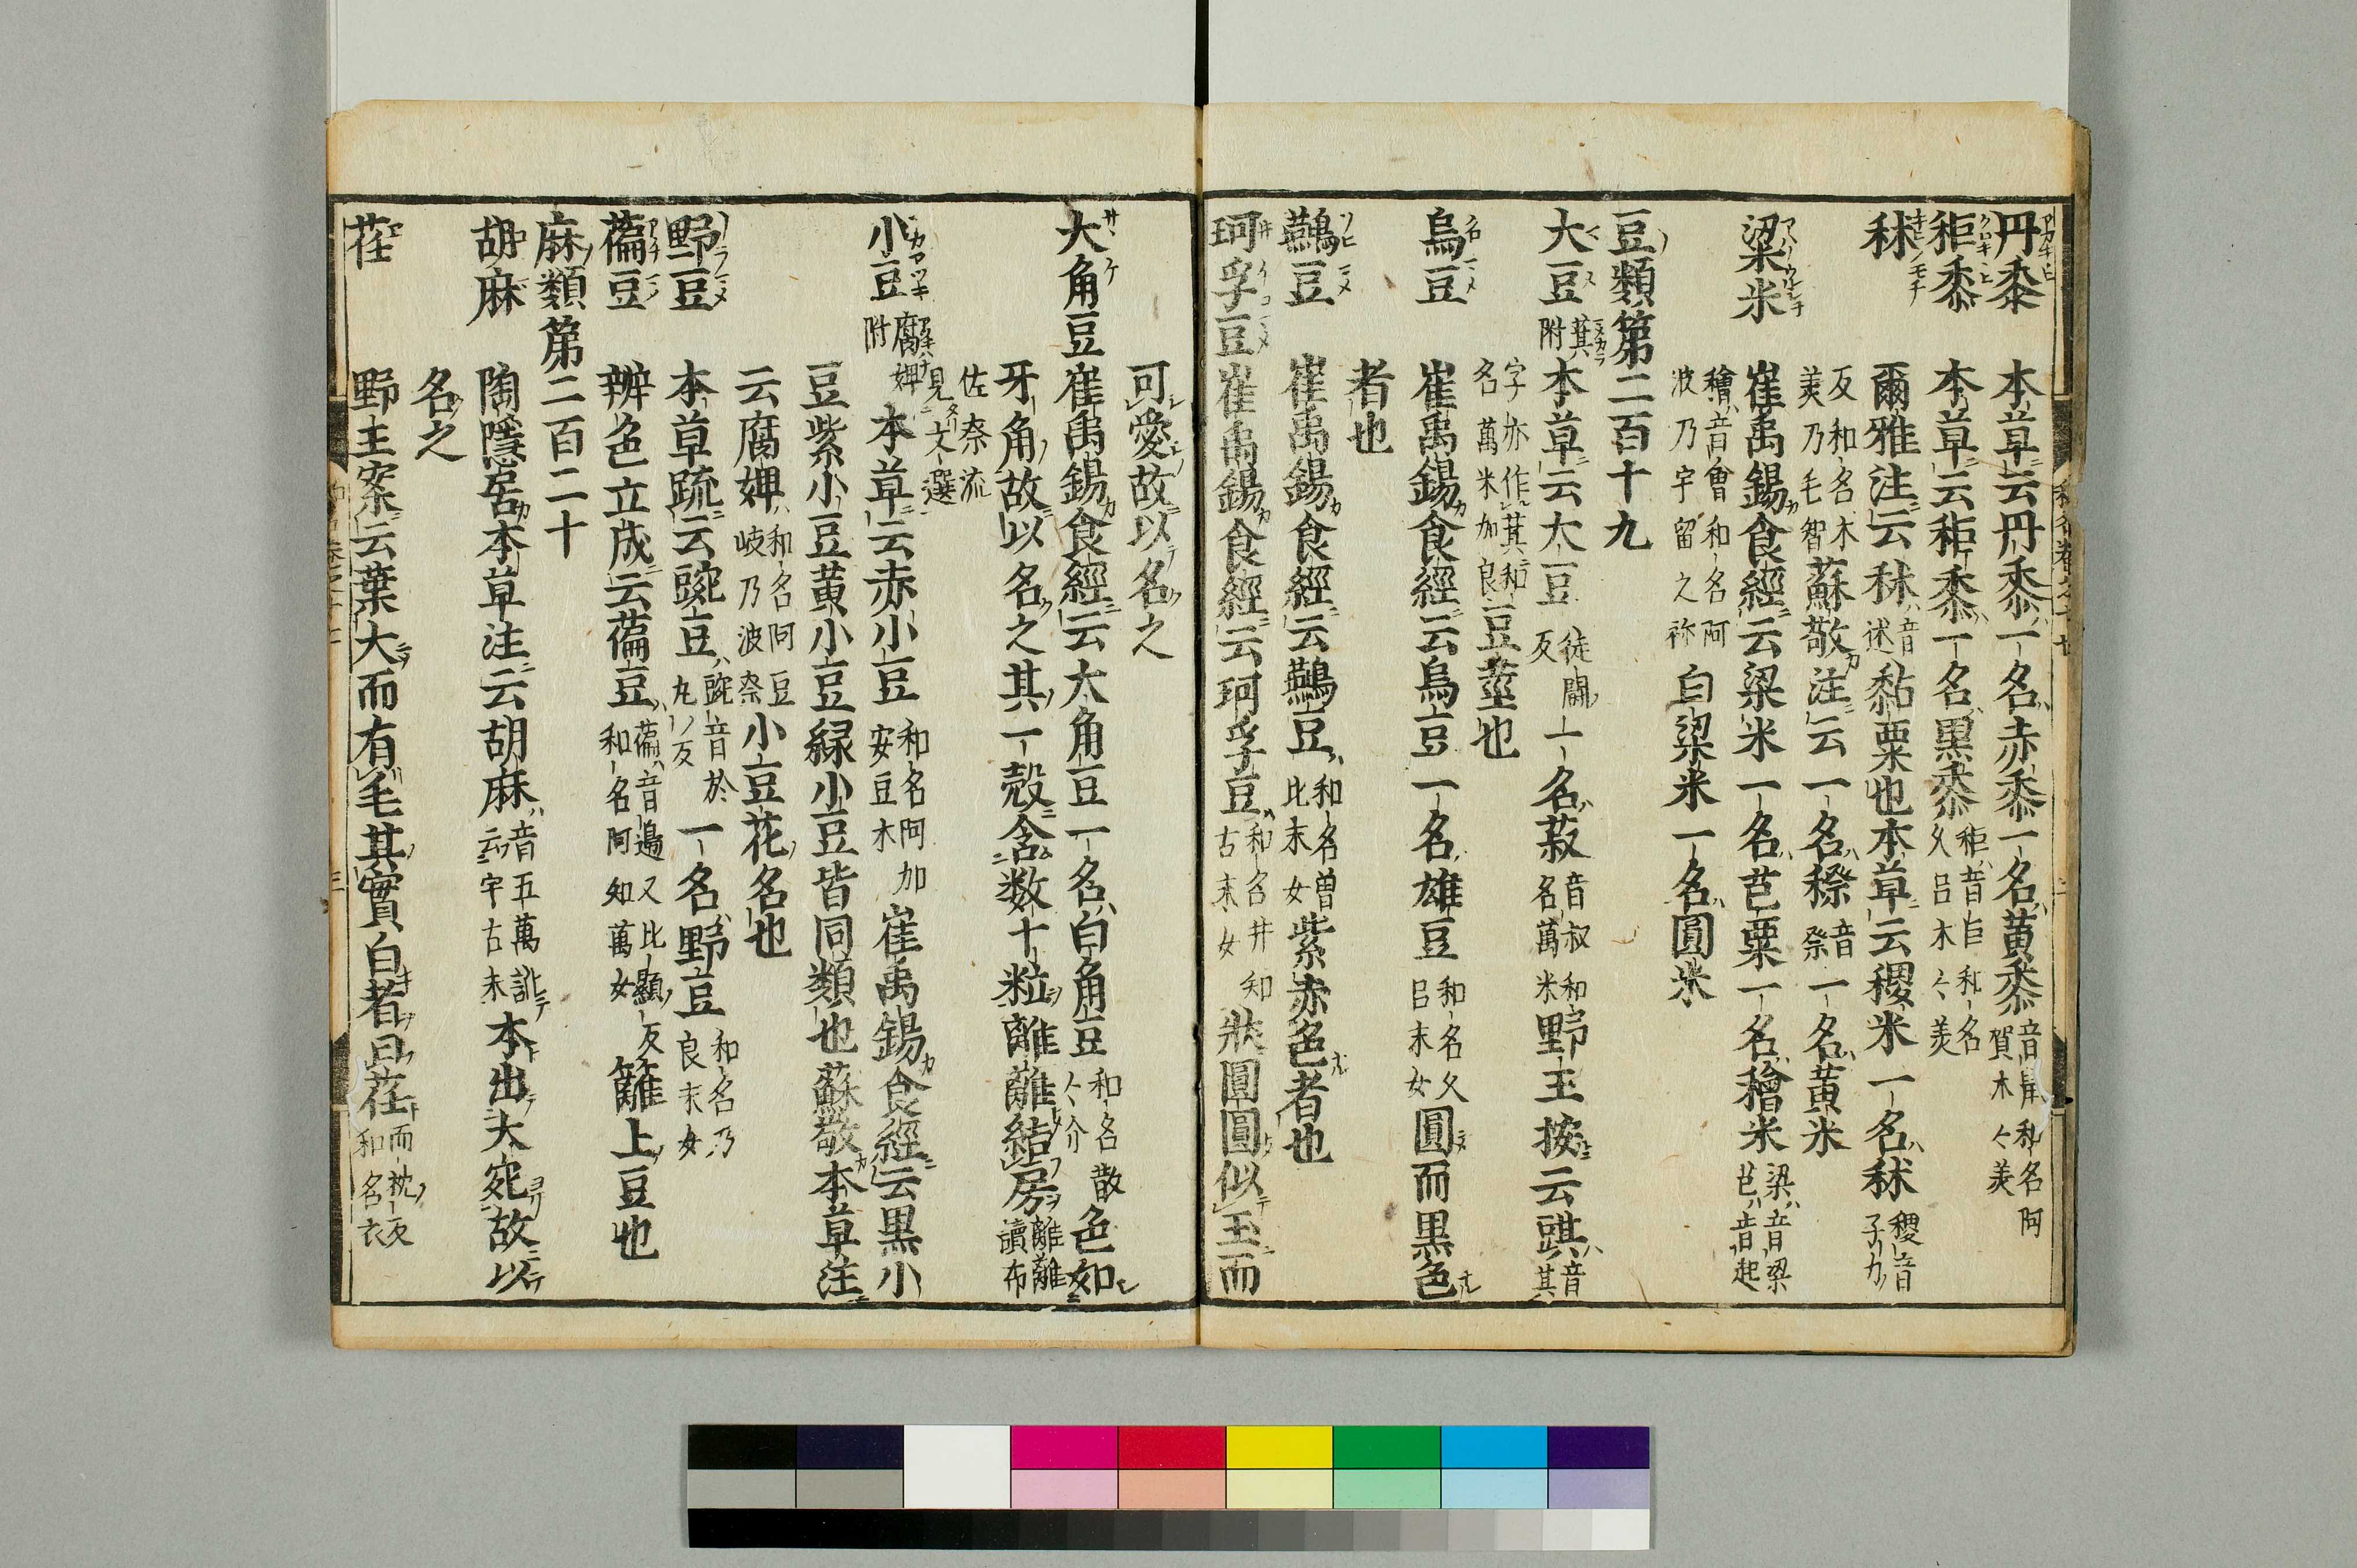 丹黍 本草云丹黍一名赤黍一名黄黍 音鼠和名阿賀木々美
秬黍 本草云秬黍一名黒黍 秬音巨和名久呂木々美
秫 爾雅注云秫 音述 黏粟也本草云稷米一名秫 稷音子力
反和名木美乃毛智 蘇敬注云一名穄 音祭 一名黄米
粱米 崔禹錫食經云粱米一名芑粟一名䅤米 粱音梁芑音起
䅤音會和名阿波乃宇留之祢 白粱米一名圓米
豆類第二百十九
大豆 萁附 本草云大豆 徒闘反 一名菽 音叔和名萬米 野王按云䓺音其
字亦作萁和名萬米加良 豆莖也
烏豆 崔禹錫食經云烏豆一名雄豆 和名久呂末女 圓而黒色
者也
鷰豆 崔禹錫食經云鷰豆 和名曽比末女 紫赤色者也
珂孚豆 崔禹錫食經云珂孚豆 和名井知古末女 狀圓圓似玉而
可愛故以名之
大角豆 崔禹錫食經云大角豆一名白角豆 和名散々介 色如
牙角故以名之其一殻含数十粒離離結房 離離讀布
佐奈流見文選
小豆 腐婢附 本草云赤小豆 和名阿加安豆木 崔禹錫食經云黒小
豆紫小豆黄小豆緑小豆皆同類也蘇敬本草注
云腐婢 和名阿豆岐乃波奈 小豆花名也
野豆 本草疏云豌豆 豌音於丸反 一名野豆 和名乃良末女
藊豆 辨色立成云藊豆 藊音邊又比顯反和名阿知萬女 籬上豆也
麻類第二百二十
胡麻 陶隱居本草注云胡麻 音五萬訛云宇古末 本出大宛故以
名之
荏 野王案云葉大而有毛其實白者曰荏 而枕反和名衣